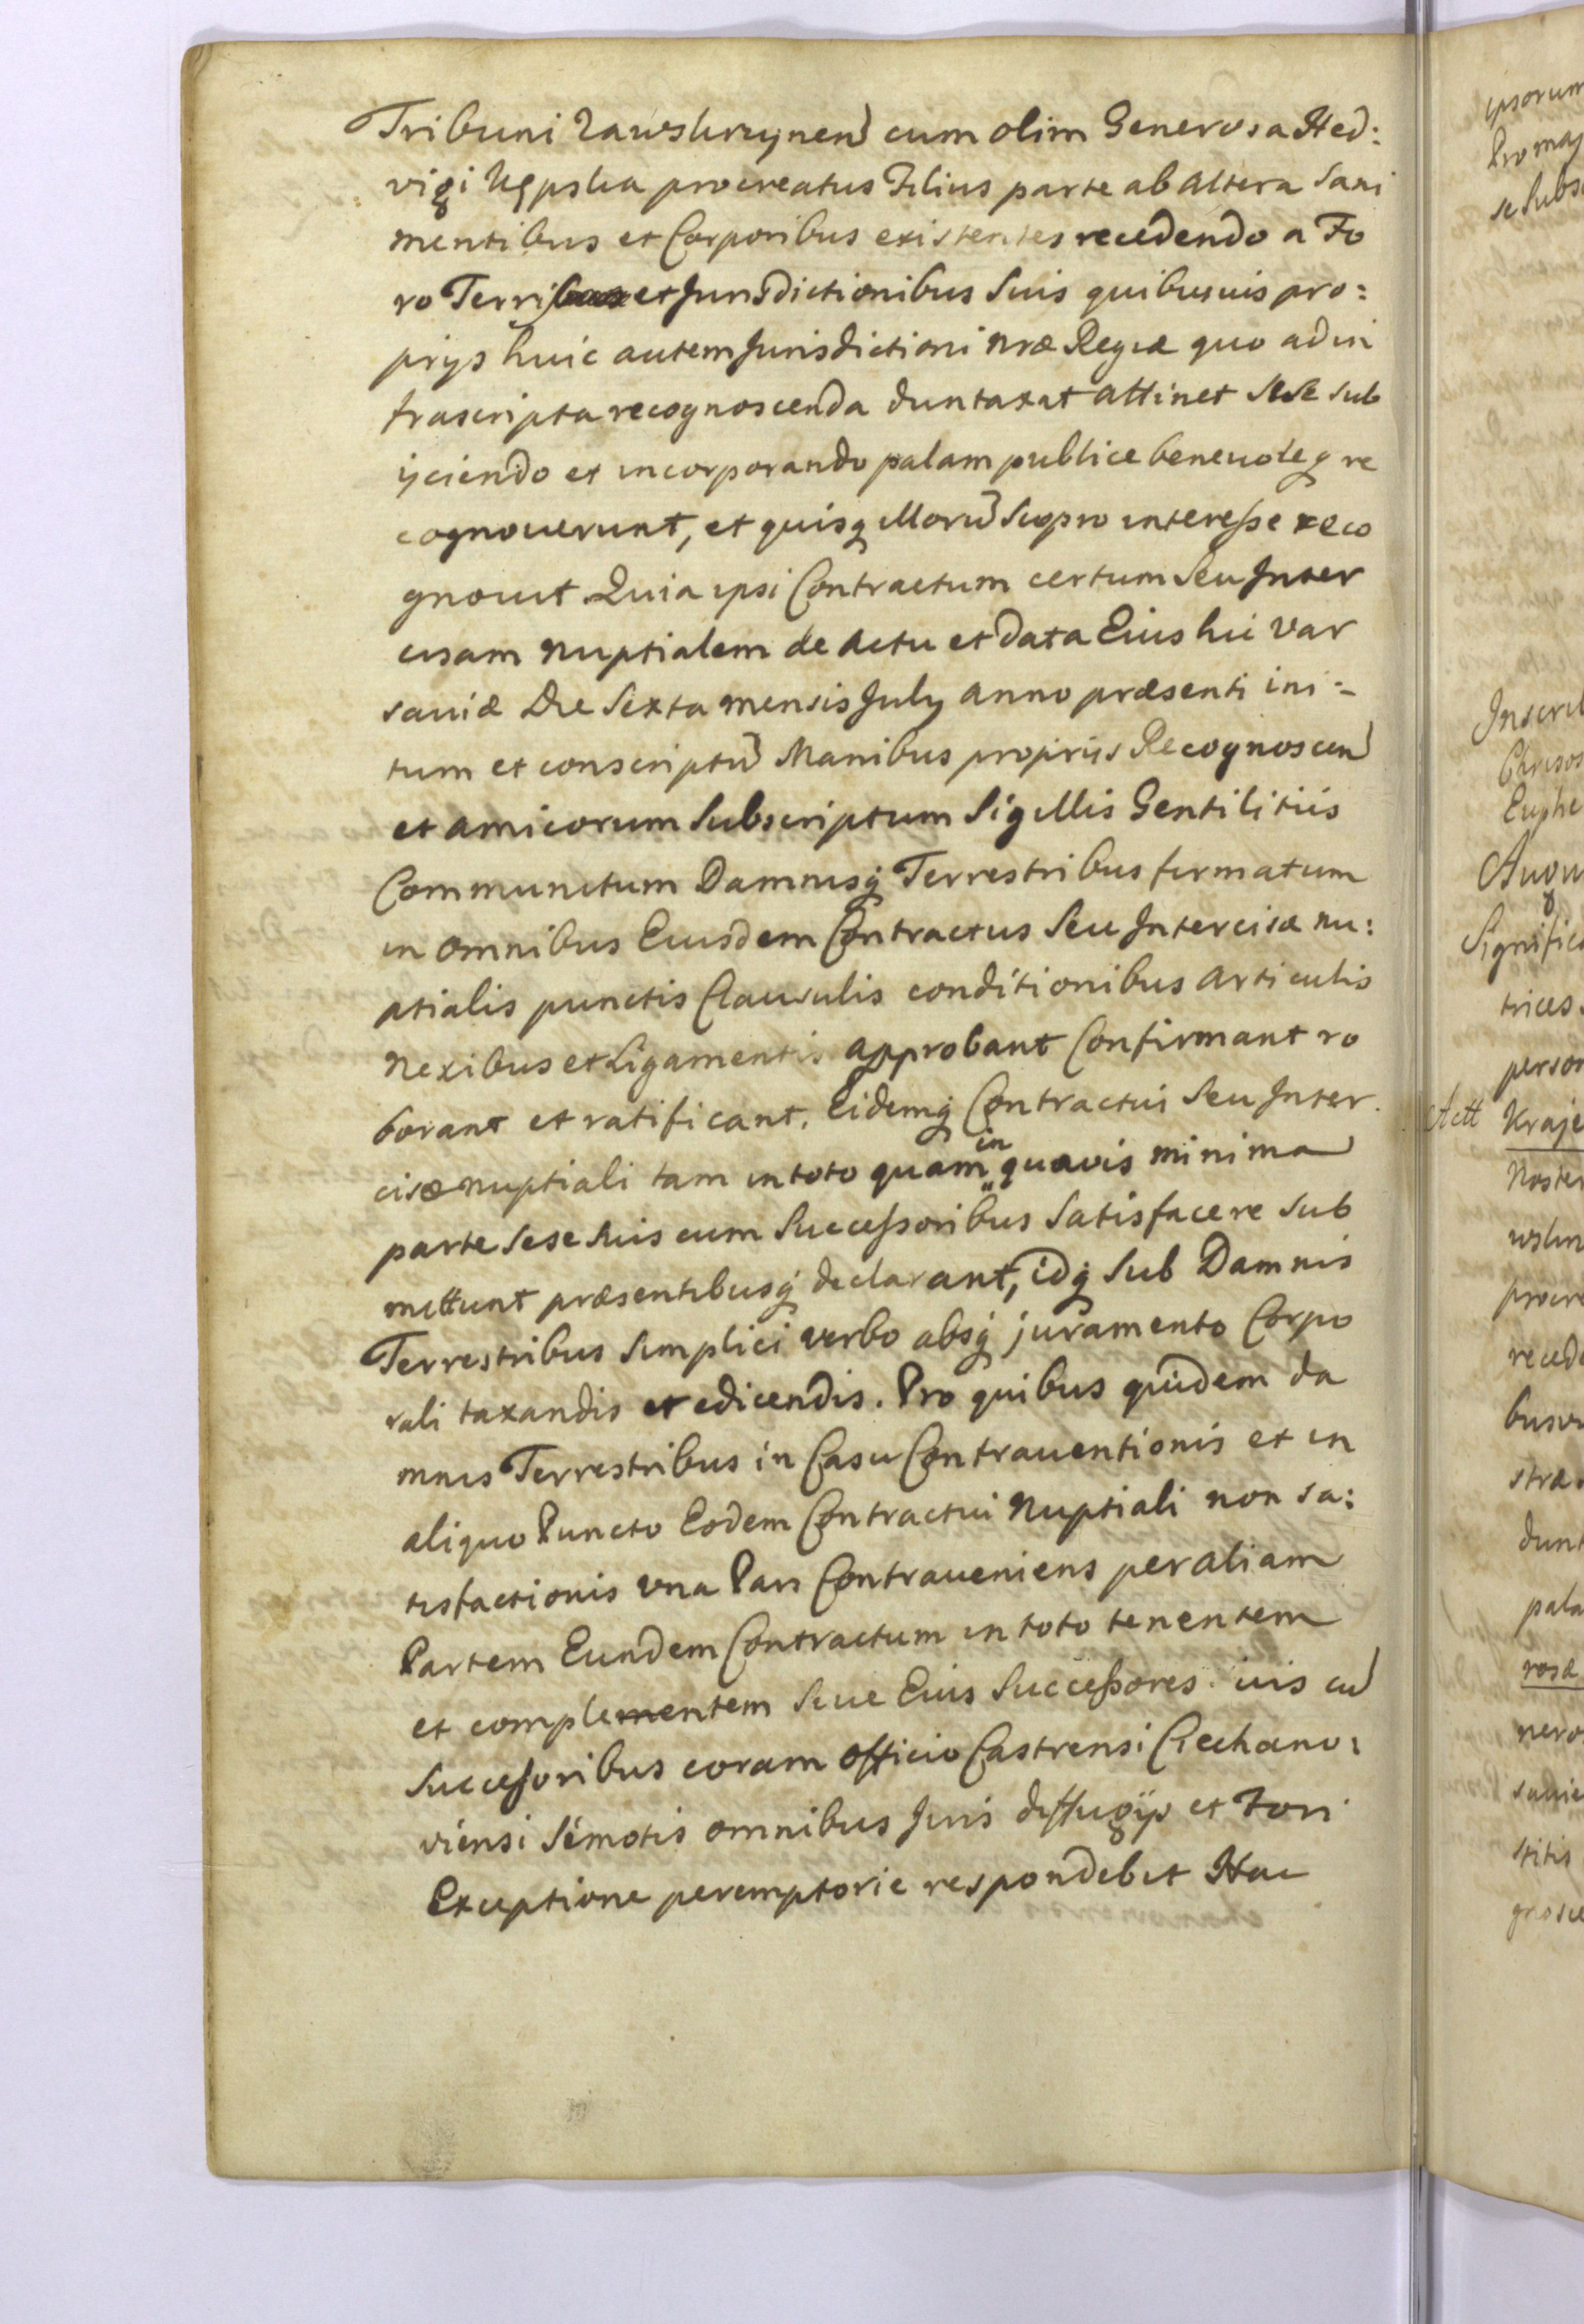 Tribuni Zawskrzynen cum olim Generosa Hed:
vigi Kępska procreatus Filius parte ab altera Sani
mentibus et Corporibus existentes recedendo a Fo
ro Terris et Jurisdictionibus Suis quibusuis pro:
prijs huic autem Jurisdictioni nræ Regiæ quo ad in
frascripta recognoscenda duntaxat attinet sese sub
ijciendo et incorporando palam publice beneuoleq re
cognouerunt, et quisq illorũ suo pro interesse reco
gnouit Quia ipsi Contractum certum Seu Inter
cisam nuptialem de actu et data Eius hic Var
sauiæ Die Sexta mensis July anno præsenti ini:
tum et conscriptũ Manibus proprijs Recognoscen
et amicorum Subscriptum Sigillis Gentilitiis
Communitum Damnisq Terrestribus firmatum
in omnibus Eiusdem Contractus Seu Intercisæ nu:
ptialis punctis Clausulis conditionibus articulis
Nexibus et Ligamentis approbant Confirmant ro
borant et ratificant. Eidemq Contractui Seu Inter
cisæ nuptiali tam in toto quam in quavis minima
parte sese suis cum Successoribus Satisfacere Sub
mittunt præsentibusq declarant, idq Sub Damnis
Terrestribus Simplici verbo absq juramento Corpo
rali taxandis et edicendis. Pro quibus quidem da
mnis Terrestribus in Casu Contrauentionis et in
aliquo Puncto Eodem Contractui Nuptiali non sa:
tisfactionis vna Pars Contraueniens per aliam
Partem Eundem Contractum in toto tenentem
et complementem Siue Eius Successores cũ
Successoribus coram officio Castrensi Ciechano:
viensi Semotis omnibus Juris diffugijs et Fori
Exceptione peremptorie respondebit Hac
ipsorum
Pro maj
se Subs
Inscrib
Chrisos
Euphe
Augu
Signific
trices
person
Actt Kraje
Noster
wskrz
procre
recede
busvi
stræ
dunt
pala
rosæ
neros
sauie
stitis
gnosce